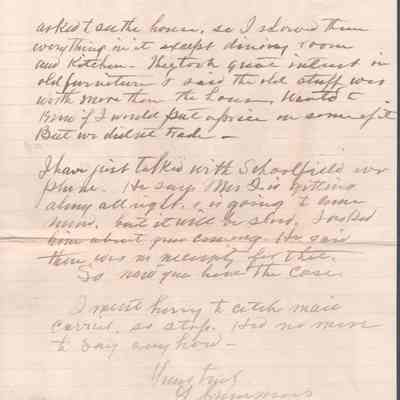 asked to see the house, so I showed them
everything in it except dining room
and kitchen. They took great interest in
old furniture & said the old stuff was
worth more than the house, Wanted to
know if I would put a price on some of it
But we did not trade —
I have just talked with Schoolfield over
phone. He says Mrs I. is getting
along all right, & is going to come
home, but it will be slow. I asked
him about your coming. He said
there was no necessity for that.
So now you have the case.
I must hurry to catch mail
carrier, so stop. Had no more
to say anyhow —
Yours truly